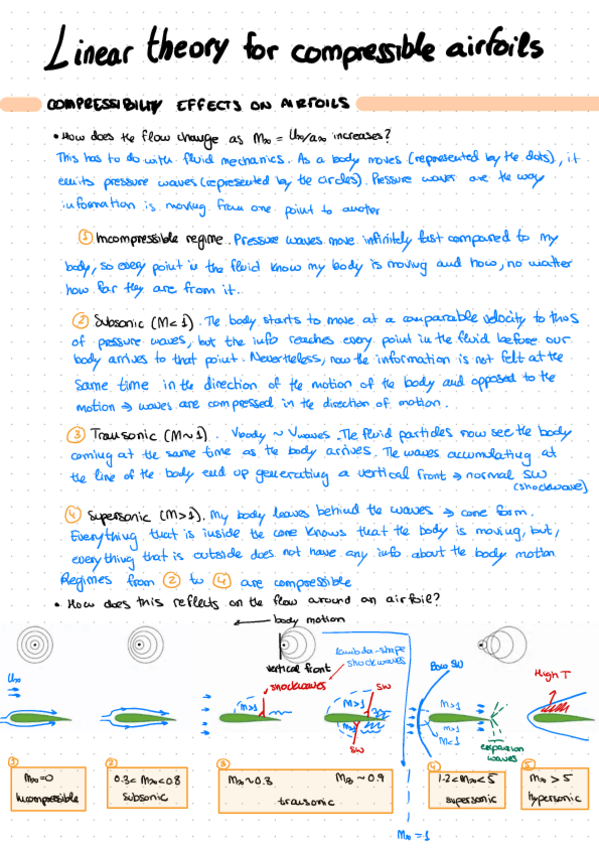 Linear theory for compressible airfoils
COMPRESSIBILITY EFFECTS ON AIRFOILS
• How does the flow change as M∞ = U∞/a∞ increases?
This has to do with fluid mechanics. As a body moves (represented by the dots), it
emits pressure waves (represented by the circles). Pressure waves are the way
information is moving from one point to another
① Incompressible regime. Pressure waves move infinitely fast compared to my
body, so every point in the fluid know my body is moving and how, no matter
how far they are from it.
② Subsonic (M<1). The body starts to move at a comparable velocity to thos
of pressure waves, but the info reaches every point in the fluid before our
body arrives to that point. Nevertheless, now the information is not felt at the
same time in the direction of the motion of the body and opposed to the
motion → waves are compressed in the direction of motion.
③ Transonic (M~1). Vbody ~ Vwaves. The fluid particles now see the body
coming at the same time as the body arrives. The waves accumulating at
the line of the body end up generating a vertical front → normal SW
(shockwave)
④ Supersonic (M>1). My body leaves behind the waves → cone form.
Everything that is inside the cone knows that the body is moving, but,
everything that is outside does not have any info about the body motion
Regimes from ② to ④ are compressible
• How does this reflects on the flow around an airfoil?
← body motion
vertical front
lambda-shape
shockwaves
shockwaves
Bow SW
High T
U∞
M>1
M>1
SW
M>1
SW
M>1
M>1
M<1
expansion
waves
① M∞=0
Incompressible
② 0.3< M∞<0.8
subsonic
③ M∞~0.8
M∞~0.9
transonic
④ 1.2<M∞<5
supersonic
⑤ M∞ > 5
hypersonic
M∞ = 1